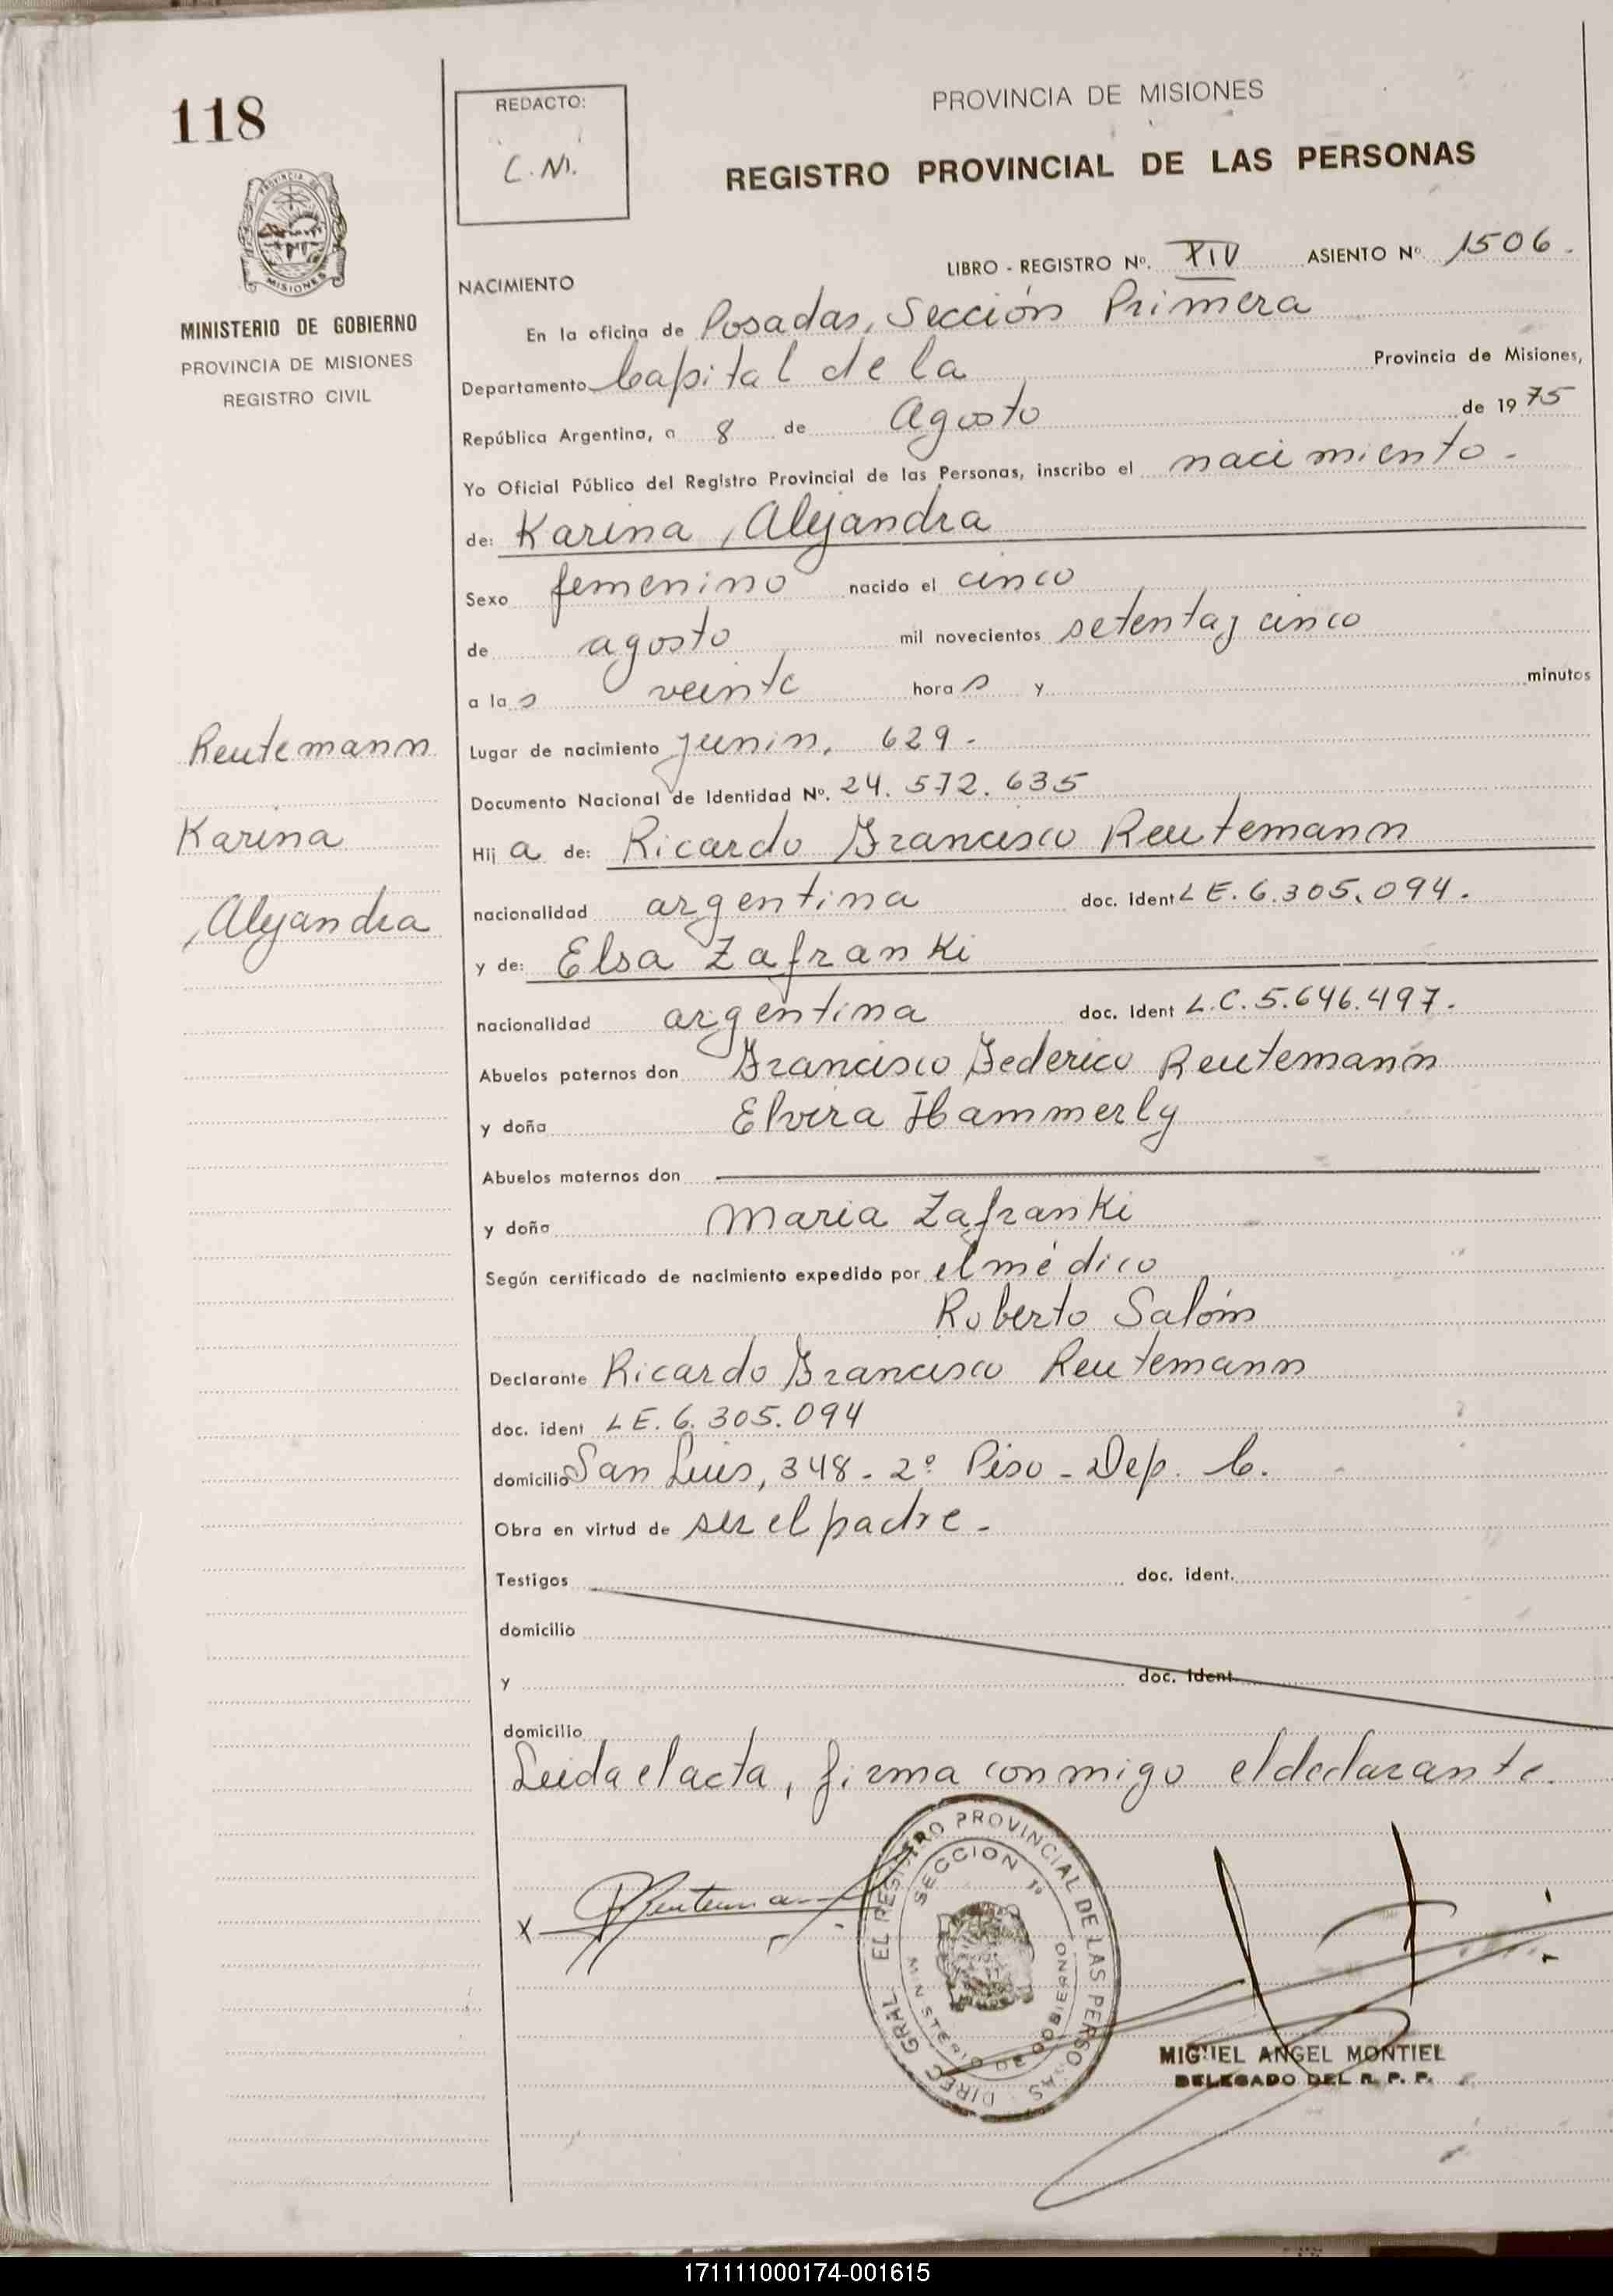 118
REDACTO:
C. M.
PROVINCIA DE MISIONES
REGISTRO PROVINCIAL DE LAS PERSONAS
PROVINCIA DE
MISIONES
MINISTERIO DE GOBIERNO
PROVINCIA DE MISIONES
REGISTRO CIVIL
LIBRO - REGISTRO Nº. XIV ASIENTO Nº 1506.
NACIMIENTO
En la oficina de Posadas, Sección Primera
Departamento Capital de la Provincia de Misiones,
República Argentina, a 8 de Agosto de 1975
Yo Oficial Público del Registro Provincial de las Personas, inscribo el nacimiento.
de: Karina, Alejandra
Sexo femenino nacido el cinco
de agosto mil novecientos setenta y cinco
a las veinte horas y minutos
Reutemann
Karina
, Alejandra
Lugar de nacimiento Junin, 629.
Documento Nacional de Identidad Nº. 24.572.635
Hija de: Ricardo Francisco Reutemann
nacionalidad argentina doc. ident L E. 6.305.094.
y de: Elsa Zafranki
nacionalidad argentina doc. Ident L.C. 5.646.497.
Abuelos paternos don Francisco Federico Reutemann
y doña Elvira Hammerly
Abuelos maternos don
y doña Maria Zafranki
Según certificado de nacimiento expedido por el médico
Roberto Salóm
Declarante Ricardo Francisco Reutemann
doc. ident L E. 6.305.094
domicilio San Luis, 348 - 2º Piso - Dep. C.
Obra en virtud de ser el padre.
Testigos doc. ident.
domicilio
y doc. Ident
domicilio
Leida el acta, firma conmigo el declarante.
X Reutemann
DIREC. GRAL. EL REGISTRO PROVINCIAL DE LAS PERSONAS
SECCION 1º
MINISTERIO DE GOBIERNO
MIGUEL ANGEL MONTIEL
DELEGADO DEL R. P. P.
171111000174-001615